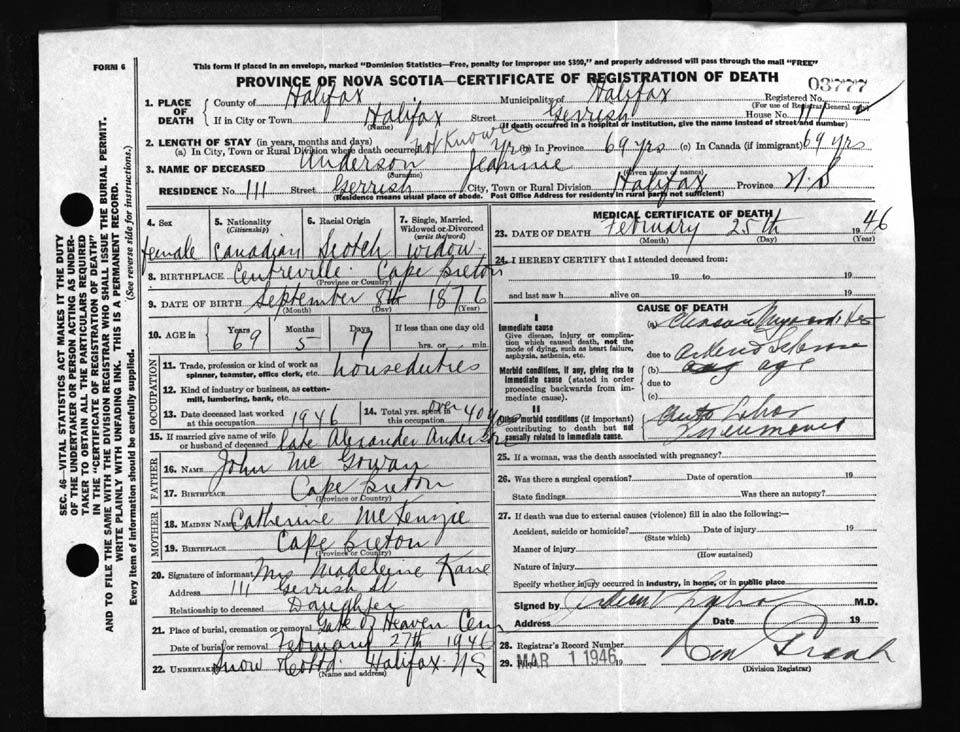 FORM 6
This form if placed in an envelope, marked "Dominion Statistics—Free, penalty for improper use $300," and properly addressed will pass through the mail "FREE"
PROVINCE OF NOVA SCOTIA—CERTIFICATE OF REGISTRATION OF DEATH
03777
1. PLACE OF DEATH
County of Halifax Municipality of Halifax Registered No.
(For use of Registrar General only)
If in City or Town Halifax Street Gerrish House No. 111
(Name) (If death occurred in a hospital or institution, give the name instead of street and number)
2. LENGTH OF STAY (in years, months and days)
(a) In City, Town or Rural Division where death occurred not Known Yrs (b) in Province 69 yrs (c) In Canada (if immigrant) 69 yrs
3. NAME OF DECEASED Anderson Jeannie
(Surname) (Given name or names)
RESIDENCE No. 111 Street Gerrish City, Town or Rural Division Halifax Province N.S
(Residence means usual place of abode. Post Office Address for residents in rural parts not sufficient)
4. Sex female
5. Nationality (Citizenship) Canadian
6. Racial Origin Scotch
7. Single, Married, Widowed or Divorced (write the word) Widow
8. BIRTHPLACE Centreville Cape Breton
(Province or Country)
9. DATE OF BIRTH September 8th 1876
(Month) (Day) (Year)
10. AGE in Years 69 Months 5 Days 17 If less than one day old hrs. or min.
OCCUPATION
11. Trade, profession or kind of work as spinner, teamster, office clerk, etc. houseduties
12. Kind of industry or business, as cotton-mill, lumbering, bank, etc.
13. Date deceased last worked at this occupation 1946
14. Total yrs. spent in this occupation over 40 yrs
15. If married give name of wife or husband of deceased late Alexander Anderson
FATHER
16. NAME John McGowan
17. BIRTHPLACE Cape Breton
(Province or Country)
MOTHER
18. MAIDEN NAME Catherine McKenzie
19. BIRTHPLACE Cape Breton
(Province or Country)
20. Signature of informant Mrs Madeleine Kane
Address 111 Gerrish St
Relationship to deceased Daughter
21. Place of burial, cremation or removal Gate of Heaven Cem
Date of burial or removal February 27th 1946
22. UNDERTAKER Snow Co Ltd. Halifax NS
(Name and address)
MEDICAL CERTIFICATE OF DEATH
23. DATE OF DEATH February 25th 1946
(Month) (Day) (Year)
24. I HEREBY CERTIFY that I attended deceased from:
19 to 19
and last saw h alive on 19
CAUSE OF DEATH
I
Immediate cause
Give disease, injury or complication which caused death, not the mode of dying, such as heart failure, asphyxia, asthenia, etc.
(a)
due to
Morbid conditions, if any, giving rise to immediate cause (stated in order proceeding backwards from immediate cause).
(b) age
due to
(c)
II
Other morbid conditions (if important) contributing to death but not causally related to immediate cause.
Lobar Pneumonia
25. If a woman, was the death associated with pregnancy?
26. Was there a surgical operation? Date of operation 19
State findings Was there an autopsy?
27. If death was due to external causes (violence) fill in also the following:—
Accident, suicide or homicide? Date of injury 19
(State which)
Manner of injury
(How sustained)
Nature of injury
Specify whether injury occurred in industry, in home, or in public place
Signed by M.D.
Address Date 19
28. Registrar's Record Number
29. Filed MAR 1 1946 19
(Division Registrar)
SEC. 46—VITAL STATISTICS ACT MAKES IT THE DUTY OF THE UNDERTAKER OR PERSON ACTING AS UNDERTAKER TO OBTAIN ALL THE PARTICULARS REQUIRED IN THE "CERTIFICATE OF REGISTRATION OF DEATH" AND TO FILE THE SAME WITH THE DIVISION REGISTRAR WHO SHALL ISSUE THE BURIAL PERMIT.
WRITE PLAINLY WITH UNFADING INK. THIS IS A PERMANENT RECORD.
Every item of information should be carefully supplied. (See reverse side for instructions.)